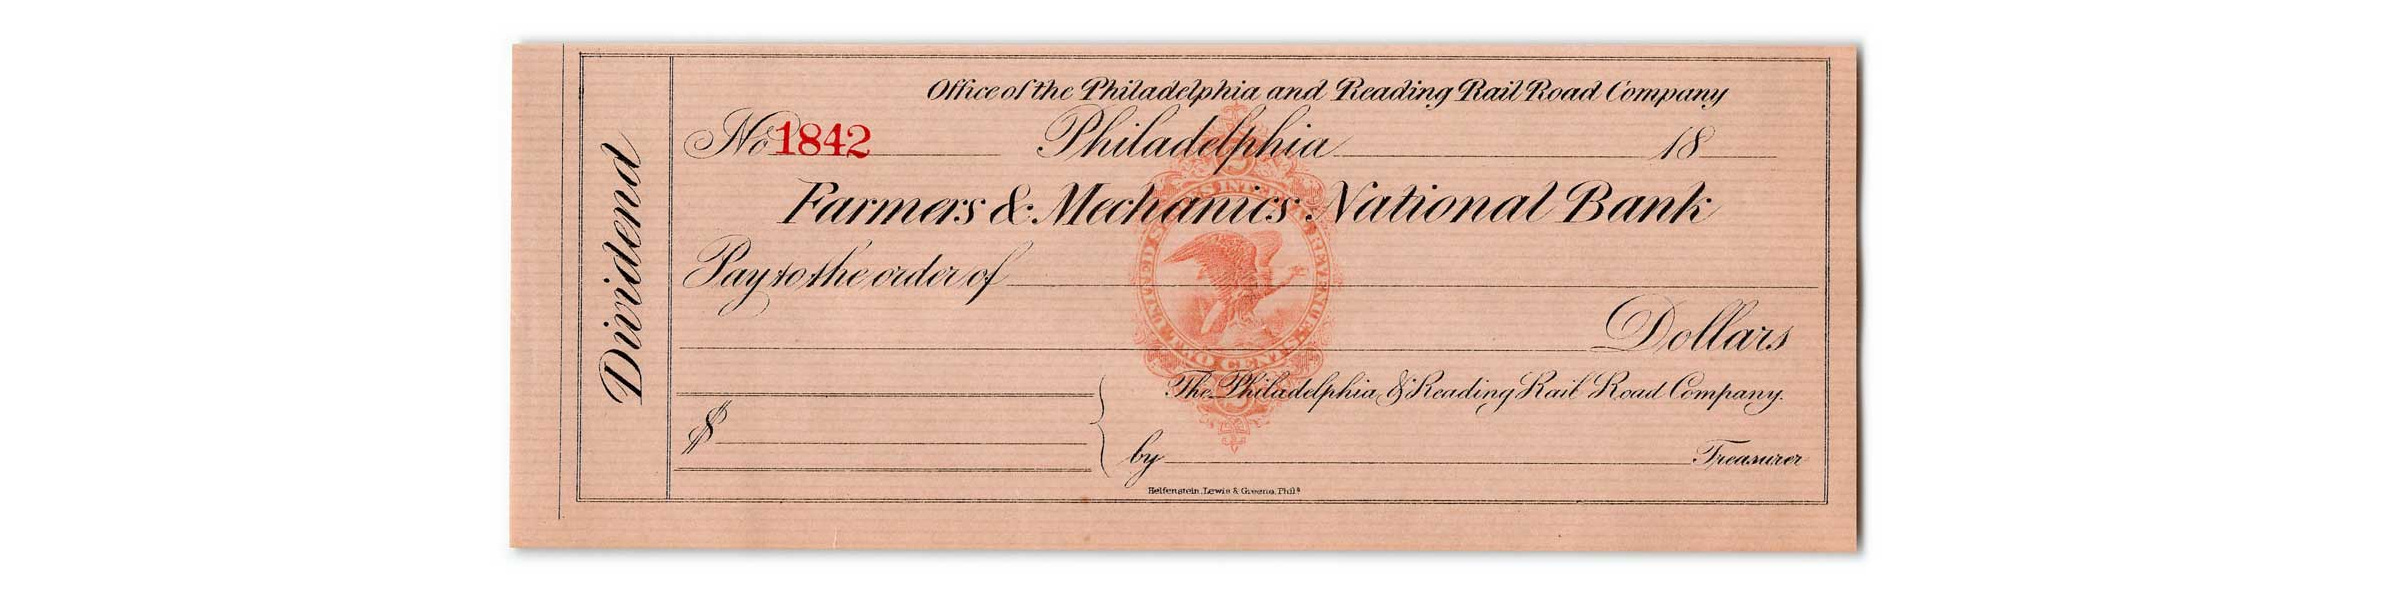 Dividend
Office of the Philadelphia and Reading Rail Road Company
No 1842 Philadelphia 18
Farmers & Mechanics National Bank
Pay to the order of
Dollars
The Philadelphia & Reading Rail Road Company.
$
by Treasurer
Helfenstein, Lewis & Greene, Phila
UNITED STATES INTERNAL REVENUE
TWO CENTS